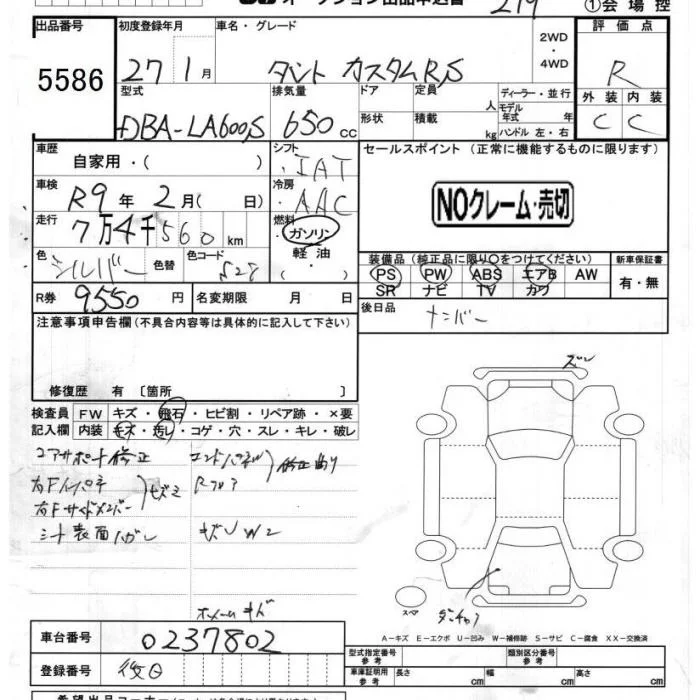 オークション出品申込書 279 ①会場控
出品番号 初度登録年月 車名・グレード 2WD・4WD 評価点
5586 27年1月 タント カスタムRS R
型式 排気量 ドア 定員 人 ディーラー・並行 外装 内装
DBA-LA600S 650cc 形状 積載 kg モデル年式 年式 ハンドル 左・右 C C
車歴 自家用・( ) シフト IAT セールスポイント (正常に機能するものに限ります)
車検 R9年2月( 日) 冷房 AAC NOクレーム・売切
走行 7万4千560km 燃料 ガソリン・軽油・( )
色 シルバー 色替 色コード S28
装備品 (純正品に限り○をつけてください) 新車保証書
PS PW ABS エアB AW 有・無
SR ナビ TV カワ
R券 9550円 名変期限 月 日 後日品 ナンバー
注意事項申告欄(不具合内容等は具体的に記入して下さい)
修復歴 有〔箇所 〕
検査員記入欄 FW キズ・飛石・ヒビ割・リペア跡・×要
内装 キズ・汚レ・コゲ・穴・スレ・キレ・破レ
コアサポート修正 エンドパネル 修正あり
右Fインパネ Rフロア
右Fサイドメンバー
シート表面ハガレ キズU W2
スペ
A-キズ E-エクボ U-凹み W-補修跡 S-サビ C-腐食 XX-交換済
車台番号 0237802 型式指定番号 参考 類別区分番号 参考
登録番号 後日 車庫証明用 参考 長さ cm 幅 cm 高さ cm